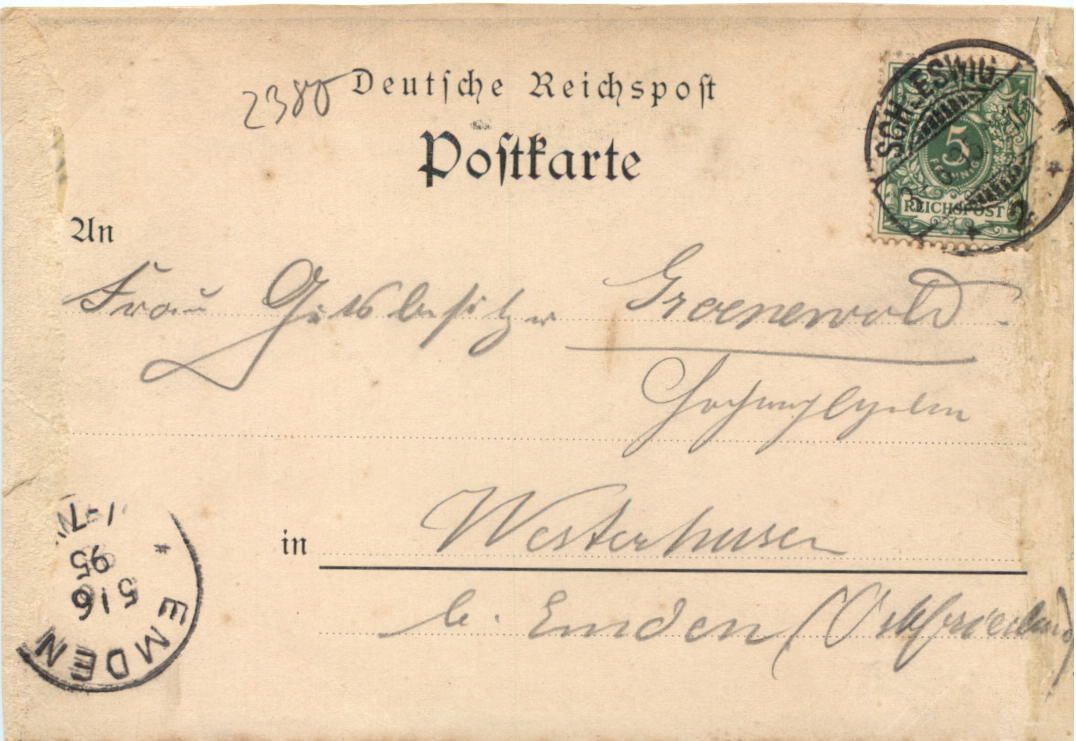 2380
Deutsche Reichspost
Postkarte
SCHLESWIG
5
PFENNIG
REICHSPOST
An
Frau Gutsbesitzer Groenewold
Hochwohlgeboren
in Westerhusen
b. Emden (Ostfriesland)
EMDEN
5 6
95